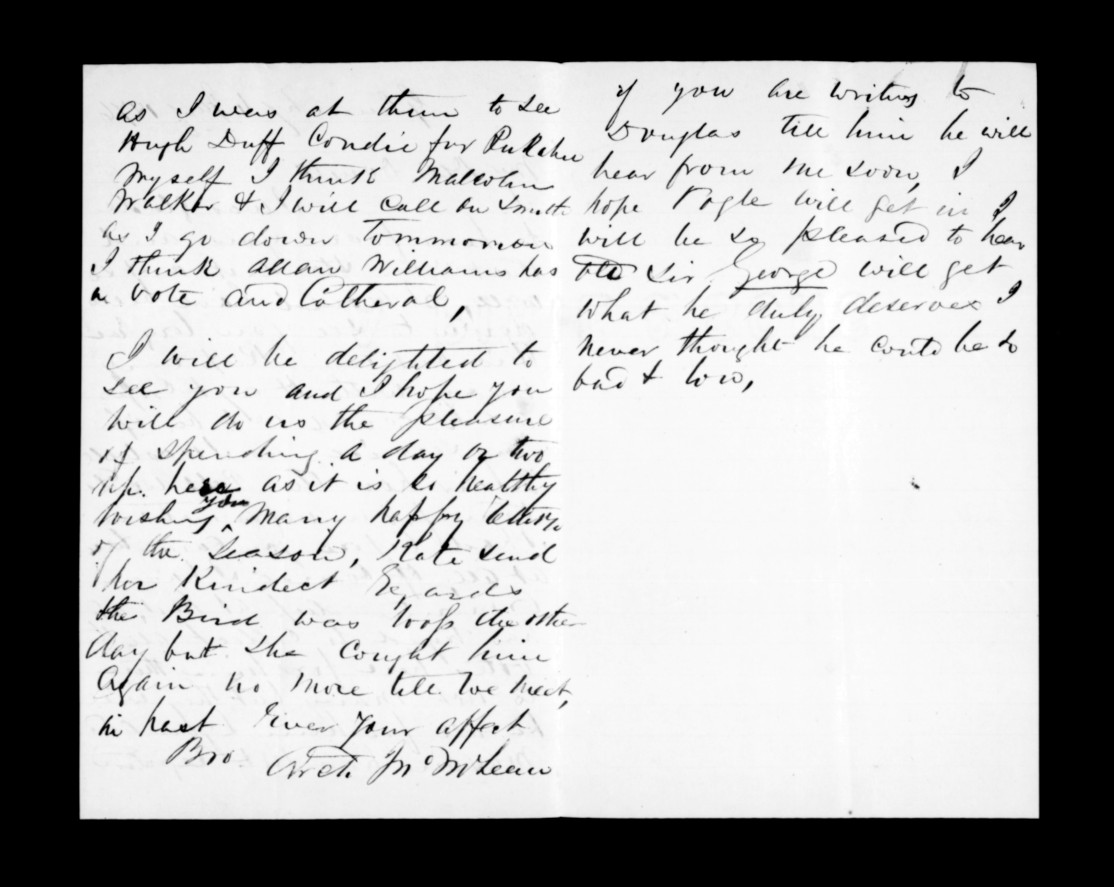 as I was at them to see
Hugh Duff Condie for Pukahu
Myself I think Malcolm
Walker & I will call on Smith
as I go down Tommorrow
I think Allan Williams has
a vote and Catheral,
I will be delighted to
see you and I hope you
will do us the pleasure
of spending a day or two
up here as it is so healthy
wishing you many happy
of the Season, Kate send
her Kindest Regards
the Bird was loose the other
day but she cought him
Again no more till we meet,
in hast Ever Your affect
Bro. Arch. Jn McLean
if you are writing to
Douglas till him he will
hear from me soon, I
hope will get in I
will be so pleased to hear
old Sir George will get
what he duly deserves I
never thought he could be so
bad & low,